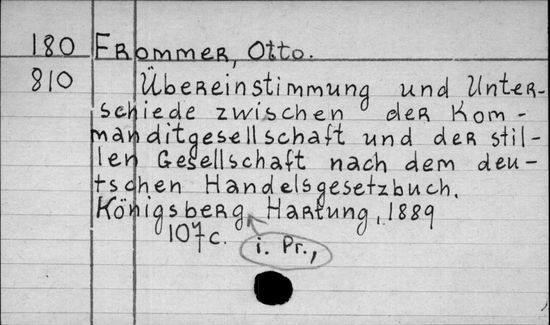 180 Frommer, Otto.
810 Übereinstimmung und Unter-
schiede zwischen der Kom-
manditgesellschaft und der stil-
len Gesellschaft nach dem deu-
tschen Handelsgesetzbuch.
Königsberg, Hartung, 1889
107c. i. Pr.,